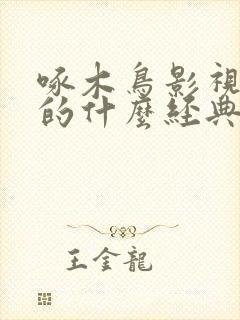 啄木鳥影視
的什麼經典
王金龍